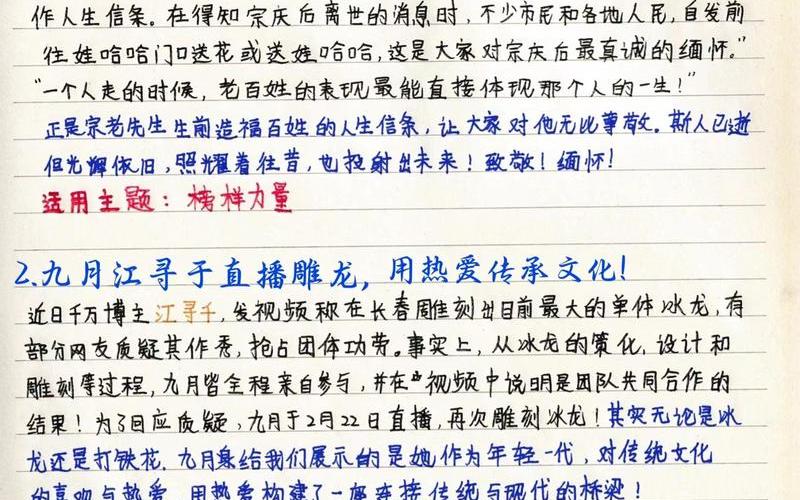 作人生信条。在得知宗庆后离世的消息时，不少市民和各地人民，自发前
往娃哈哈门口送花或送娃哈哈，这是大家对宗庆后最真诚的缅怀。”
“一个人走的时候，老百姓的表现最能直接体现那个人的一生！”
正是宗老先生生前造福百姓的人生信条，让大家对他无比尊敬。斯人已逝
但光辉依旧，照耀着往昔，也投射出未来！致敬！缅怀！
适用主题：榜样力量
2.九月江寻于直播雕龙，用热爱传承文化！
近日千万博主江寻千，发视频称在长春雕刻出目前最大的单体冰龙，有
部分网友质疑其作秀，抢占团体功劳。事实上，从冰龙的策化，设计和
雕刻等过程，九月皆全程亲自参与，并在视频中说明是团队共同合作的
结果！为了回应质疑，九月于2月22日直播，再次雕刻冰龙！其实无论是冰
龙还是打铁花，九月集给我们展示的是她作为年轻一代，对传统文化
的喜欢与热爱，用热爱构建了一座连接传统与现代的桥梁！